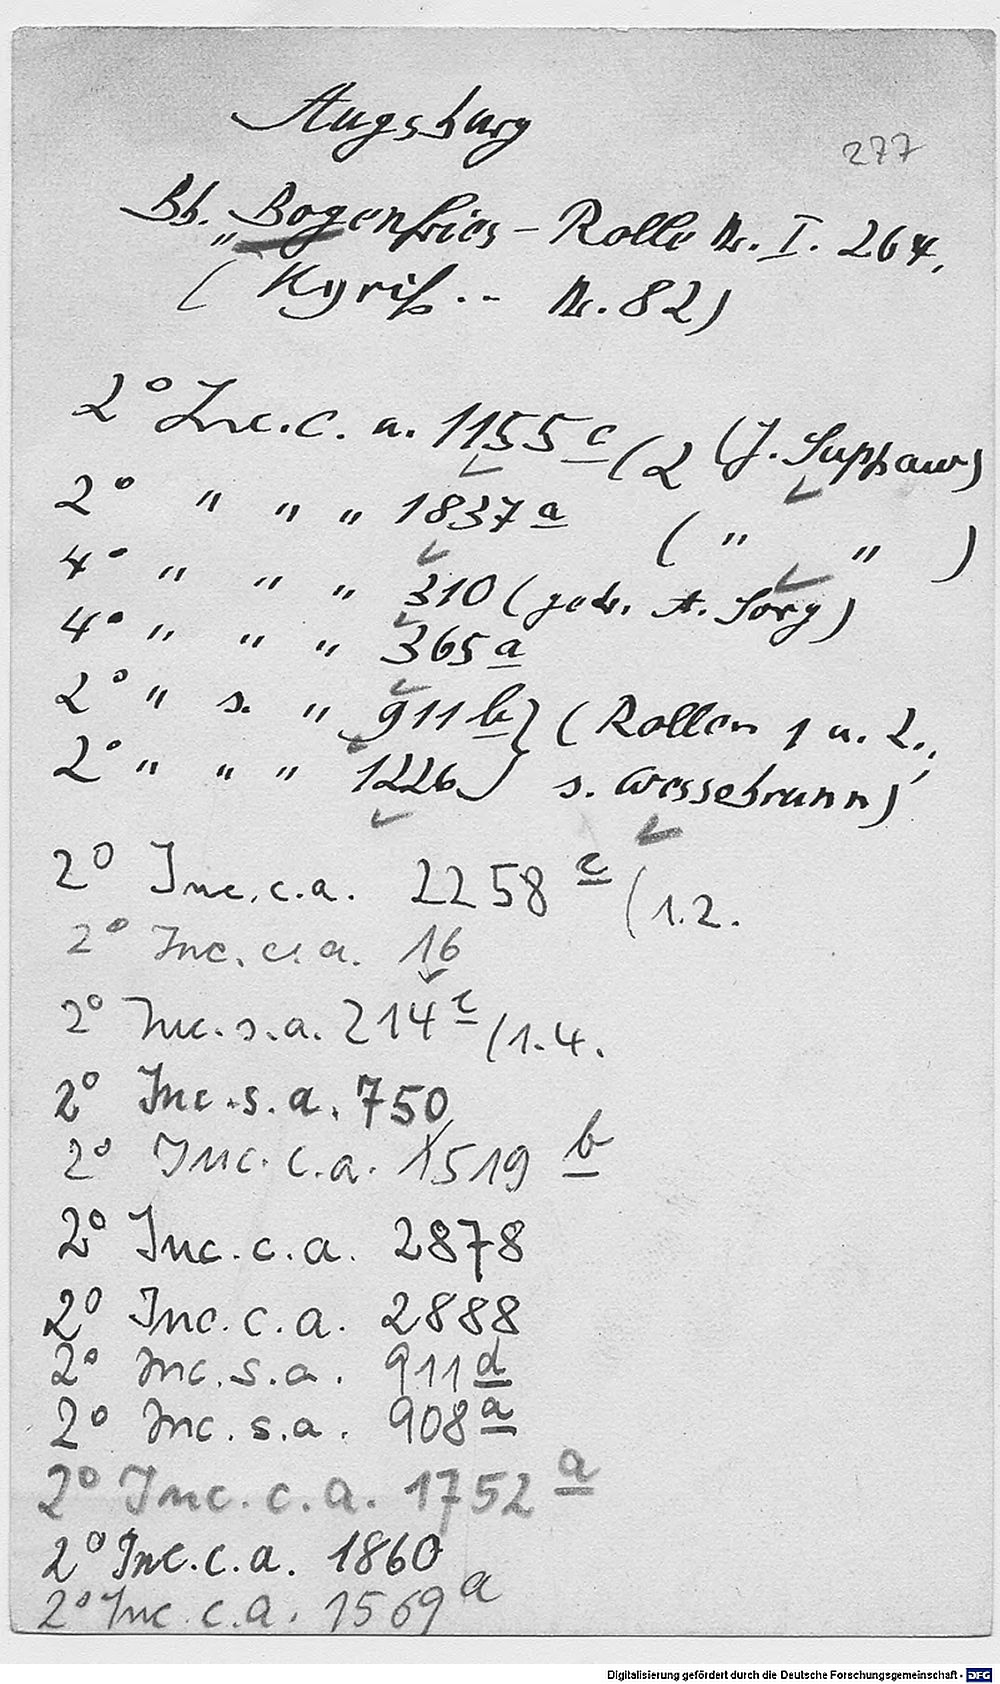 Augsburg
277
Bb. „Bogenfries – Rolle Nr. I. 264.
(Kyriß .. Nr. 82)
2° Inc. c. a. 1155 c (2 (J. Suppan)
2° " " " 1837 a ( " " )
4° " " " 310 (gedr. A. Sorg)
4° " " " 365 a
2° " s. " 911 b } (Rollen 1 u. 2.,
2° " " " 1226 } s. Wessobrunn)
2° Inc. c. a. 2258 c (1.2.
2° Inc. c. a. 16
2° Inc. s. a. 214 c /1-4.
2° Inc. s. a. 750
2° Inc. c. a. 1519 b
2° Inc. c. a. 2878
2° Inc. c. a. 2888
2° Inc. s. a. 911 d
2° Inc. s. a. 908 a
2° Inc. c. a. 1752 a
2° Inc. c. a. 1860
2° Inc. c. a. 1569 a
Digitalisierung gefördert durch die Deutsche Forschungsgemeinschaft - DFG